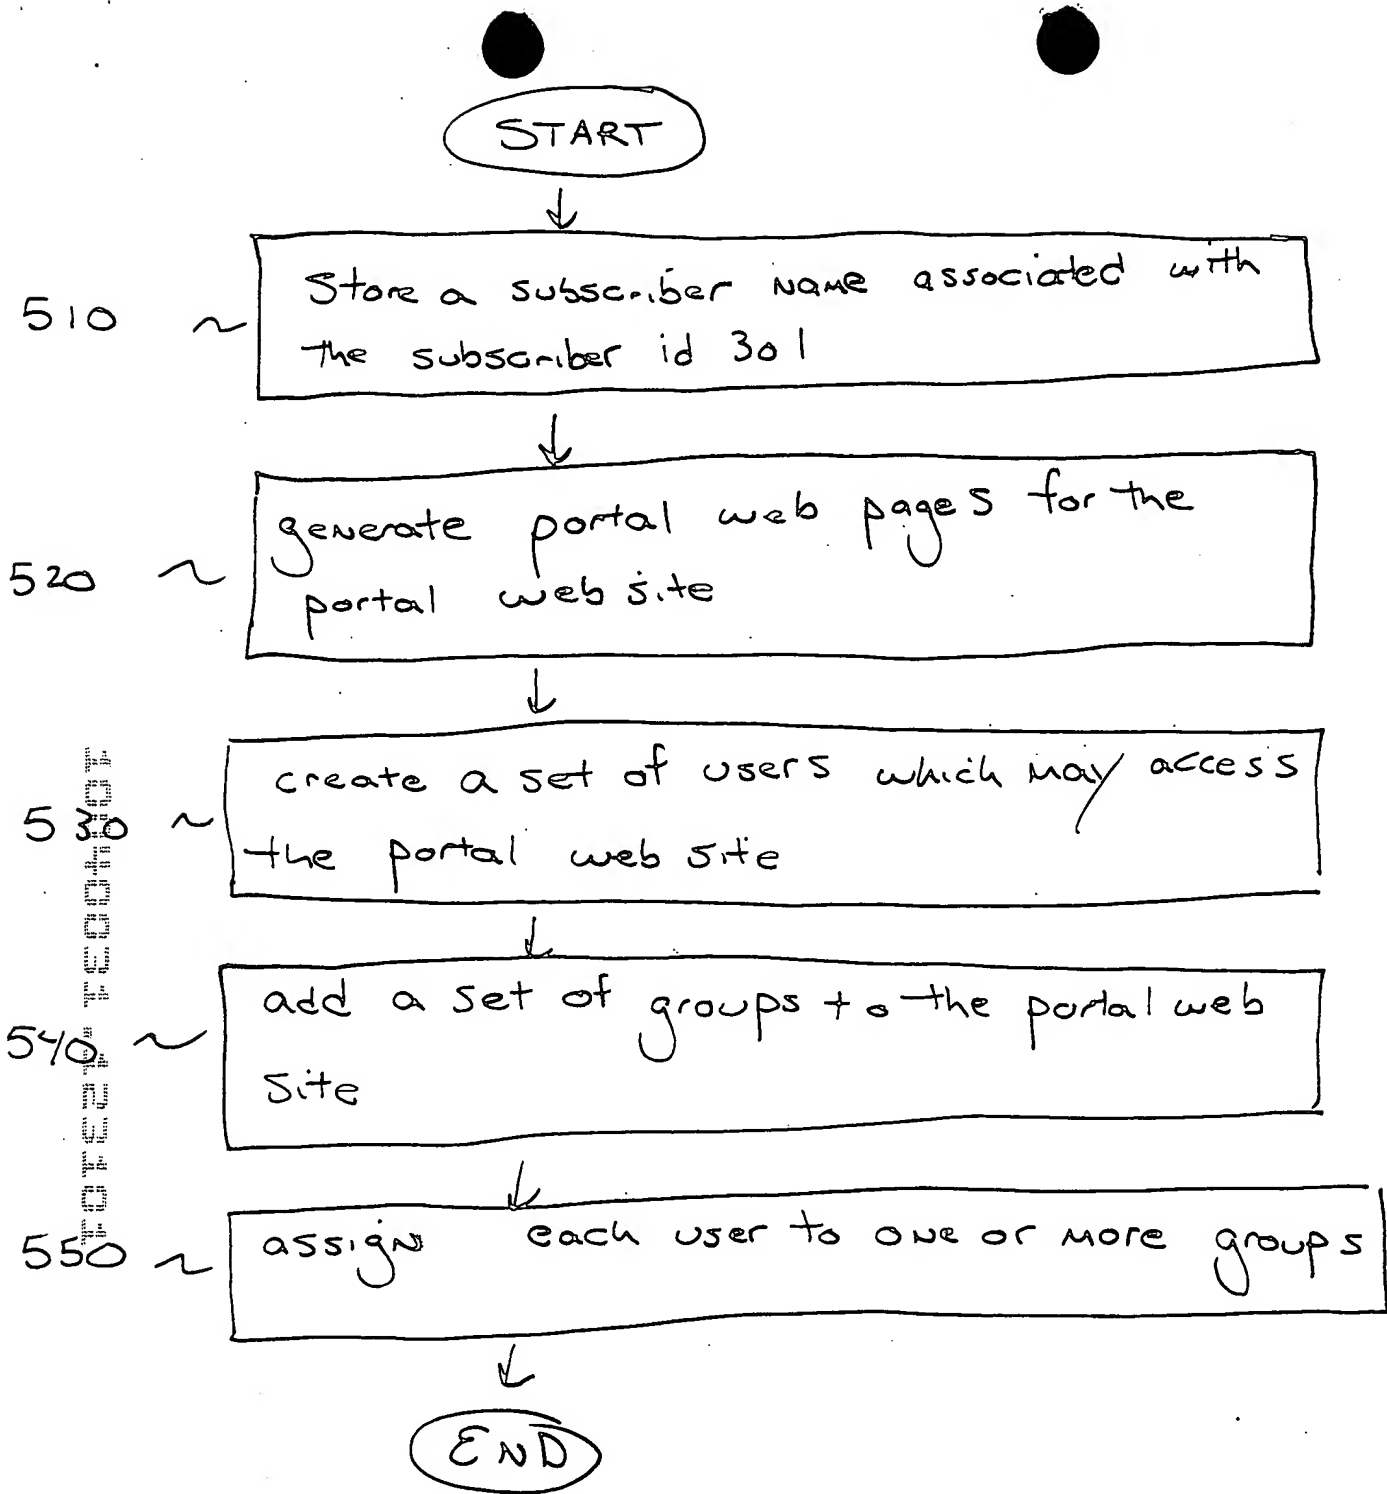 START
510 ~ Store a subscriber name associated with
the subscriber id 301
520 ~ generate portal web pages for the
portal web site
530 ~ create a set of users which may access
the portal web site
540 ~ add a set of groups to the portal web
site
550 ~ assign each user to one or more groups
END
10040031.123101